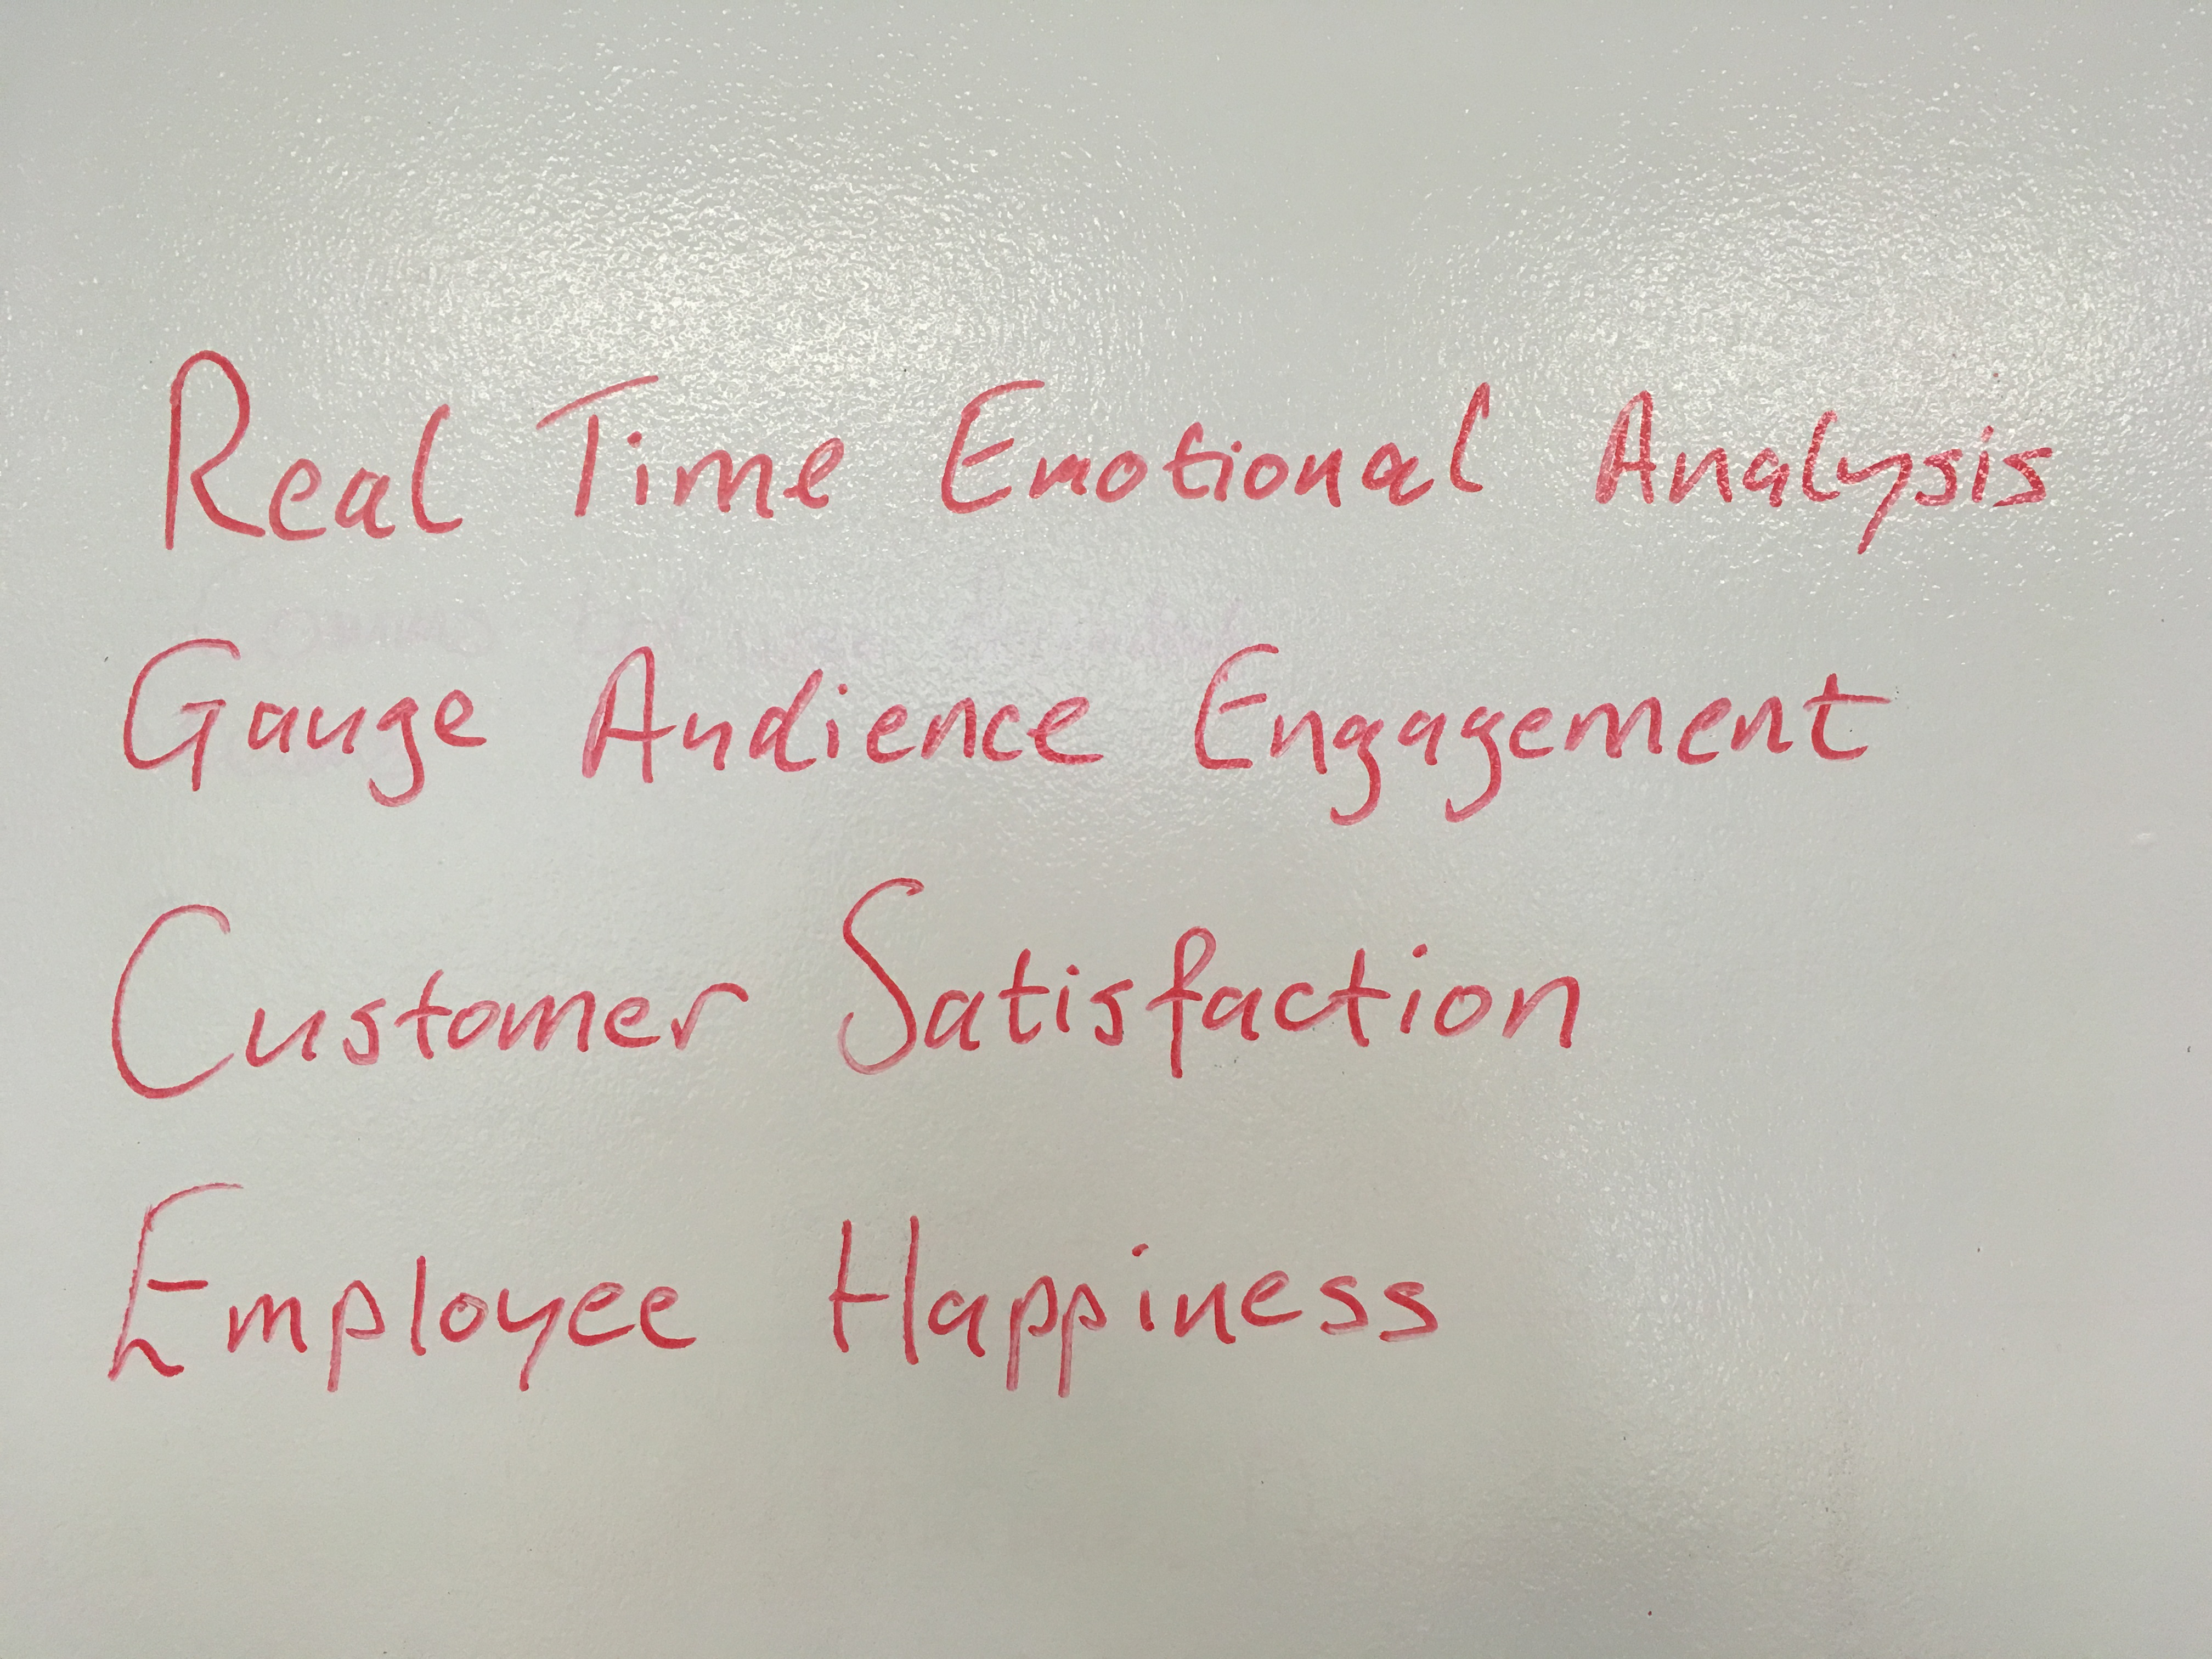 Real Time Emotional Analysis
Gauge Audience Engagement
Customer Satisfaction
Employee Happiness